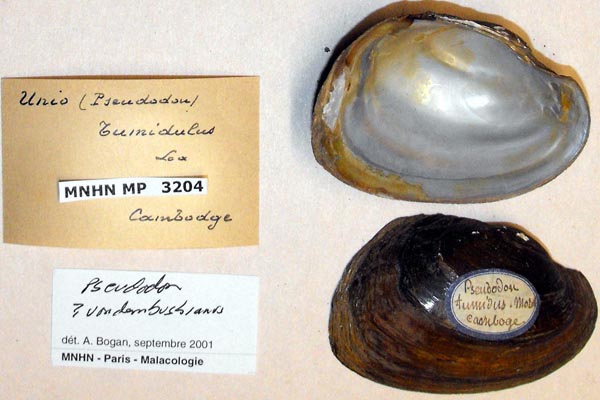 Unio (Pseudodon)
Tumidulus
Lea
MNHN MP 3204
Cambodge
Pseudodon
? vondembuschianus
dét. A. Bogan, septembre 2001
MNHN - Paris - Malacologie
Pseudodon
tumidus. Morl
Camboge